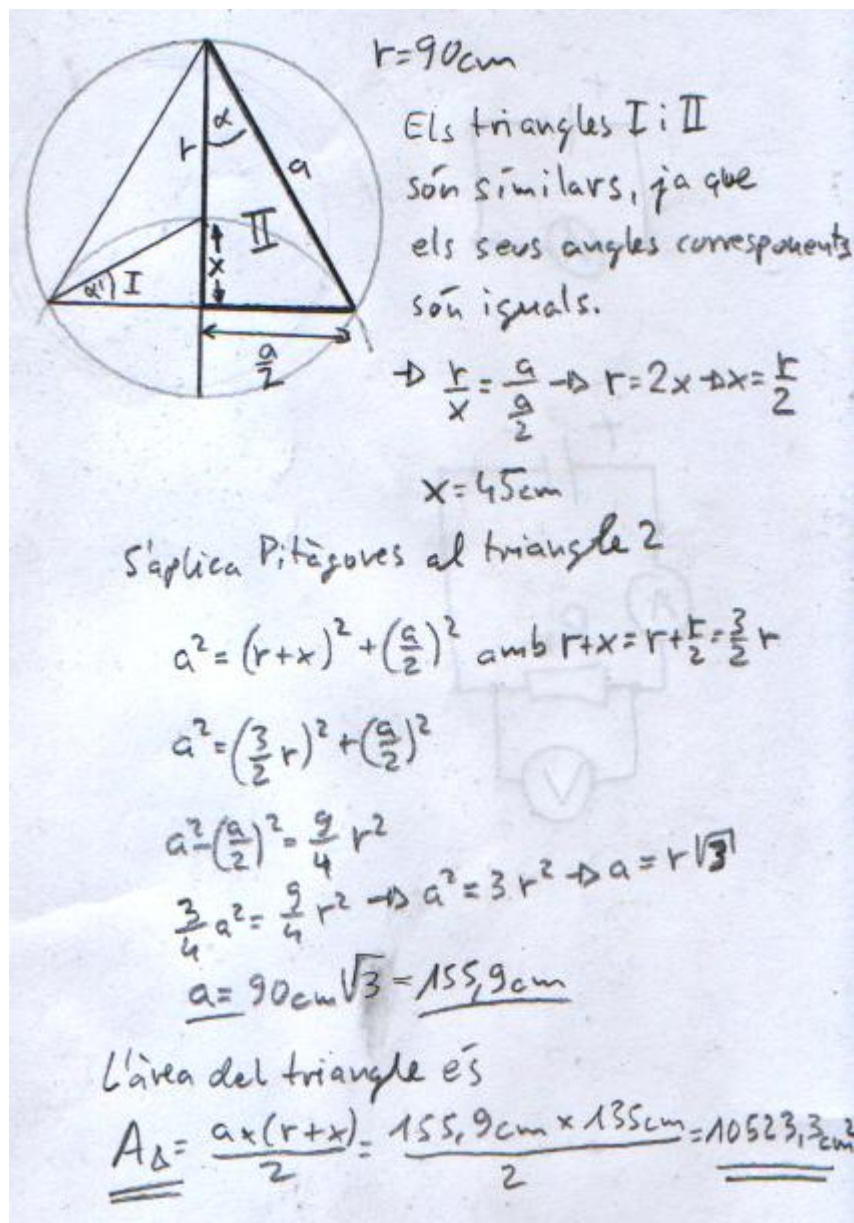 r=90cm
Els triangles I i II
són símilars, ja que
els seus angles corresponents
són iguals.
r
α
a
II
x
α') I
a/2
→ r/x = a/(a/2) → r=2x → x=r/2
x=45cm
S'aplica Pitàgores al triangle 2
a²=(r+x)²+(a/2)² amb r+x=r+r/2=3/2 r
a²=(3/2 r)²+(a/2)²
a²-(a/2)²=9/4 r²
3/4 a²=9/4 r² → a²=3r² → a=r√3
a=90cm√3=155,9cm
L'àrea del triangle és
A△=a×(r+x)/2=155,9cm×135cm/2=10523,3cm²